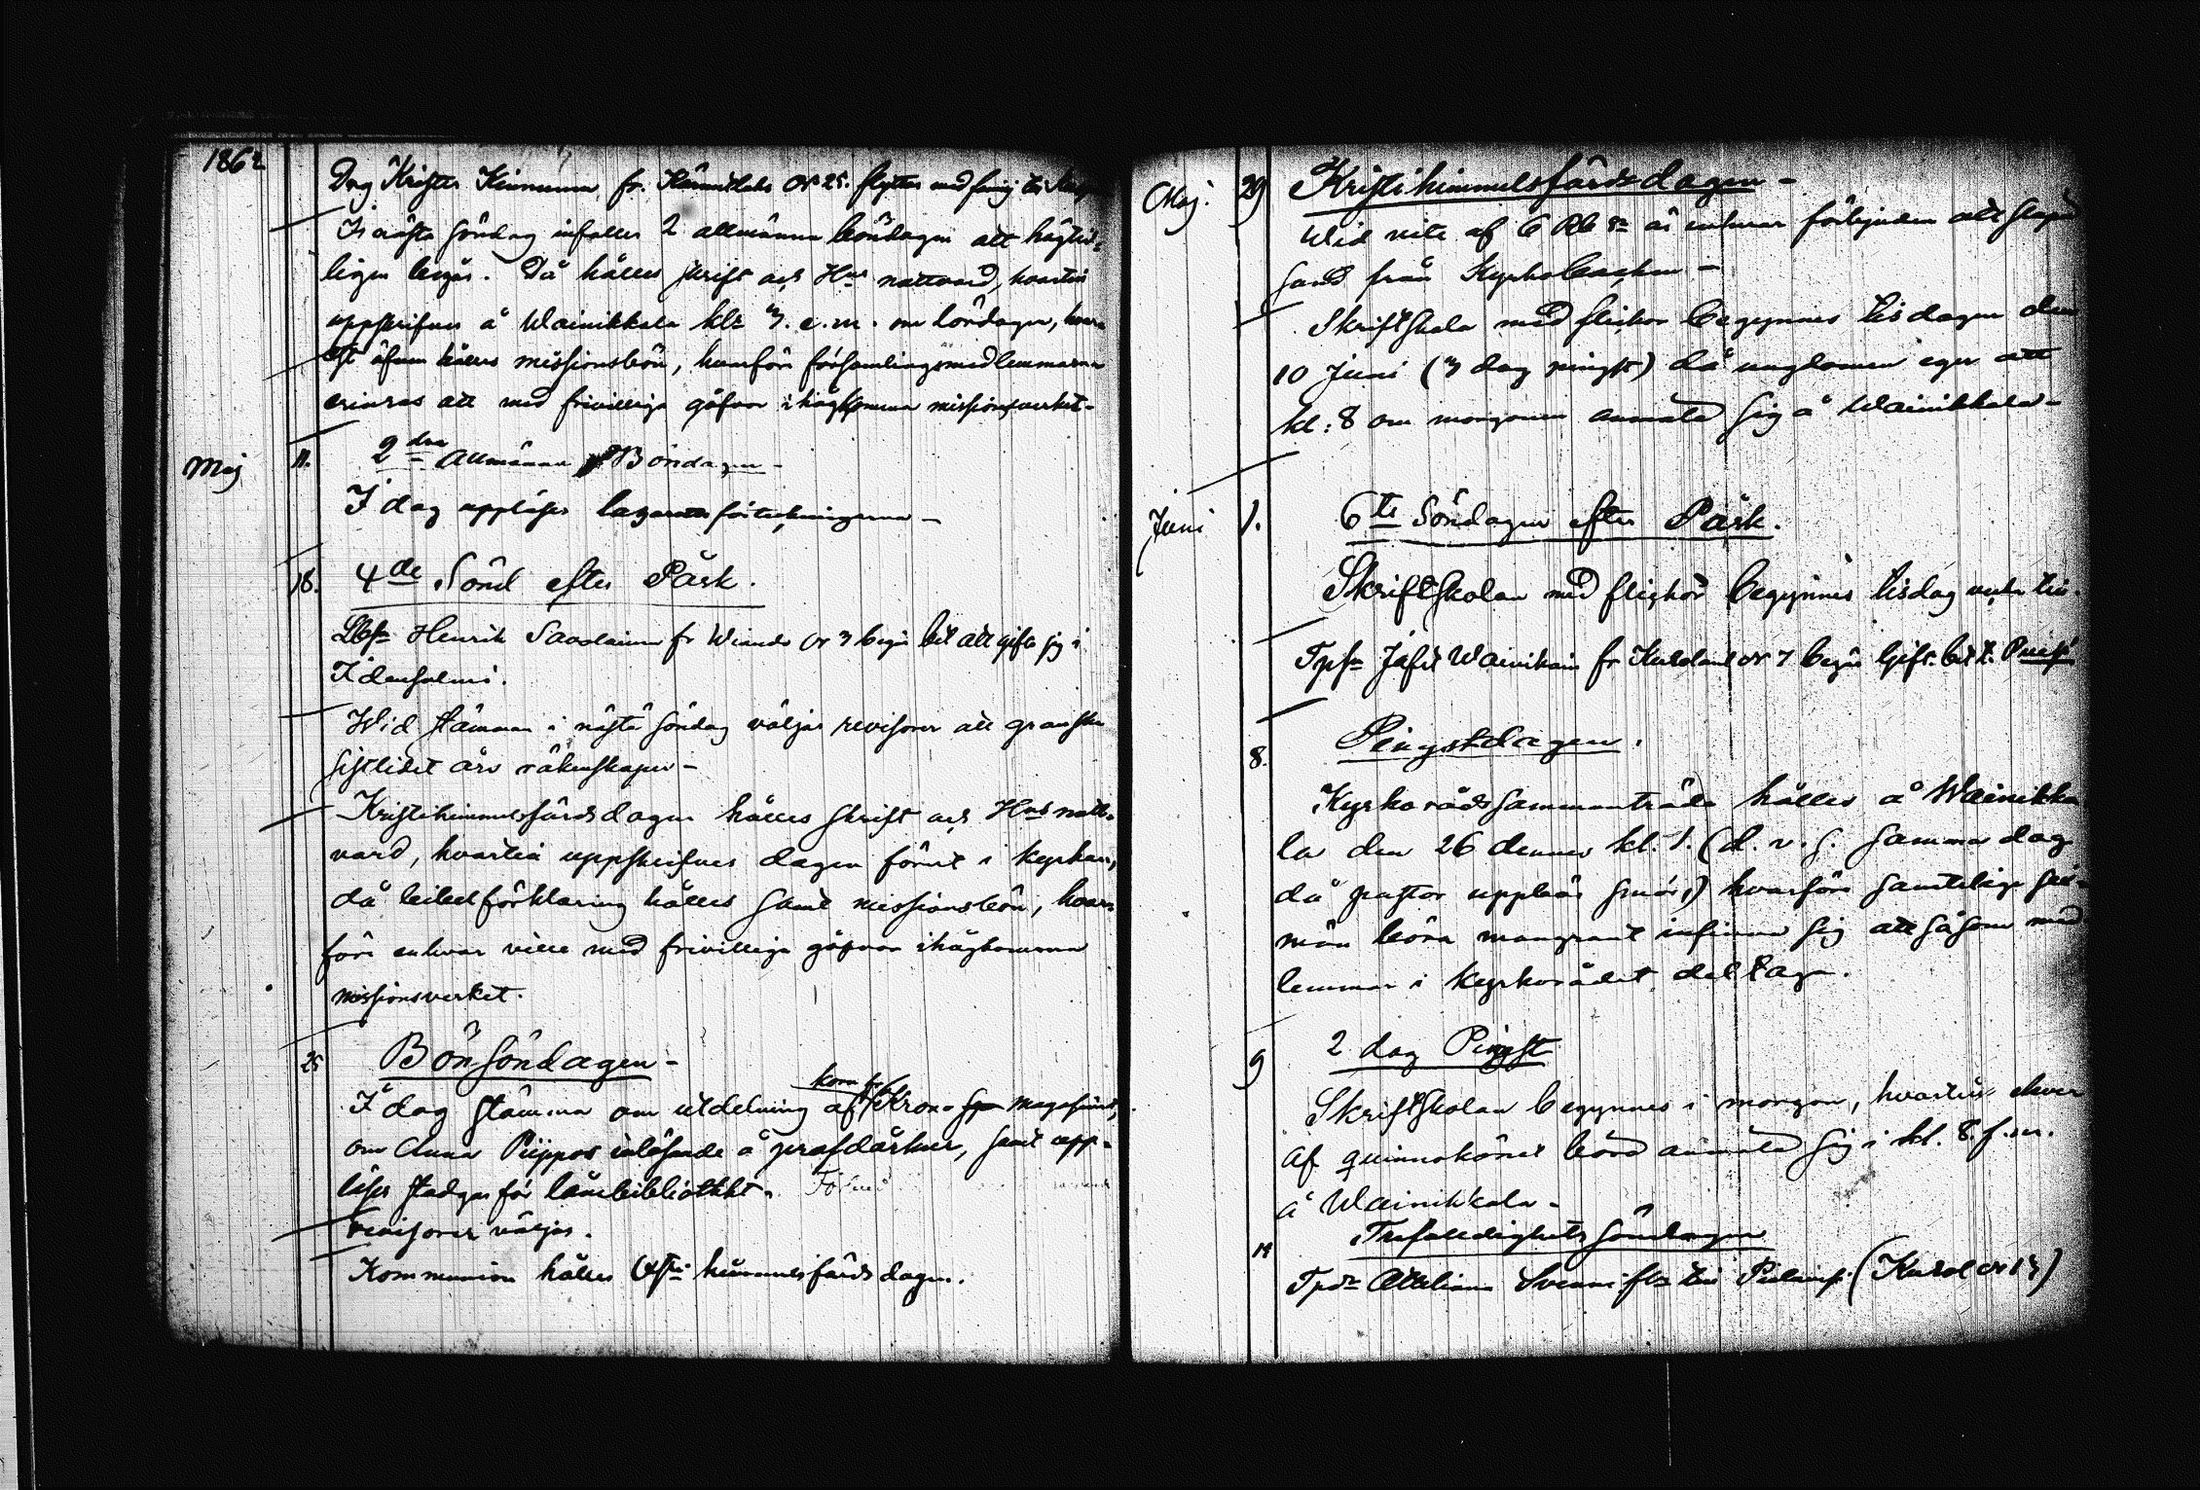 1862
Drg Krister Kinnunen fr. No 25. flyttar med familj till
I nästa söndag infaller 2 allmänna böndagen att högtid-
ligen begås. Då hålles skrift och Hns nattvard, hvartill
uppskrifves å Wainikkala kl. 3 e.m. om Lördagen, hvar-
est äfven hålles missionsbön, hvarföre församlingsmedlemmarna
erinras att med frivilliga gåfvor ihågkomma missionsverket -
Maj 11. 2dra Allmänna Böndagen -
I dag uppläses förteckningarna -
18. 4de Sönd efter Påsk.
Henrik Savolainen fr No 3 begär bet att gifta sig i
Idensalmi.
Wid stämman i nästa söndag väljas revisorer att granska
sistlidet års räkenskaper -
Kristihimmelsfärdsdagen hålles skrift och Hns natt-
vard, hvartill uppskrifves dagen förut i kyrkan,
då bibelförklaring hålles samt missionsbön, hvar-
före enhvar ville med frivilliga gåfvor ihågkomma
missionsverket.
25 Bönsöndagen -
korn fr
I dag stämma om utdelning af Krono magasinet,
om Anna Piippos inlösande å samt upp-
läses stadgar för lånebibliothket.
revisorer väljas.
Kommunion hålles Kristi himmelsfärds dagen.
Maj. 29 Kristihimmelsfärdsdagen -
Wid vite af 6 Rb Sr är enhvar förbjuden att släpa
sand från Kyrkobacken -
Skriftskola med flickor begynnes tisdagen den
10 Juni (3 dag pingst) då ungdomen eger att
kl: 8 om morgonen anmäla sig å Wainikkala -
Juni 1. 6te Söndagen efter Påsk.
Skriftskolan med flickor begynnes tisdag
Wainikain fr No 7 begär
8. Pingstdagen.
Kyrkorådssammanträde hålles å Wainikka-
la den 26 dennes kl. 1. (d.v.s. samma dag
då pastor uppbär smör,) hvarföre samtelige sex-
män böra mangrant infinna sig att såsom med-
lemmar i kyrkorådet deltaga.
9 2 dag Pingst
Skriftskolan begynnes i morgon, hvartill ehvar
af qvinnokönet böra anmäla sig i kl. 8. f.m.
å Wainikkala -
Trefaldighets söndagen